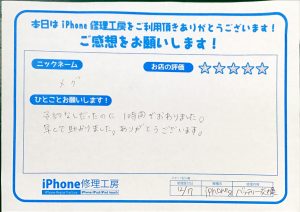 本日は iPhone 修理工房をご利用頂きありがとうございます!
ご感想をお願いします!
ニックネーム
お店の評価
☆☆☆☆☆
メグ
ひとことお願いします!
予約なしだったのに 1時間でおわりました。
早くて助かりました。ありがとうございます。
iPhone修理工房